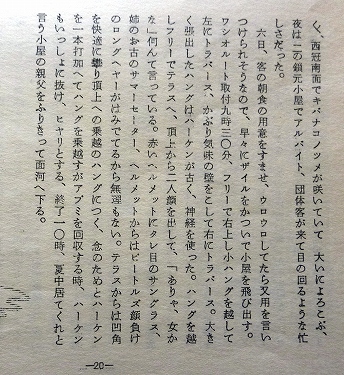 く、西冠南面でキバナコノツメが咲いていて 大いによろこぶ、
夜は一の鎖元小屋でアルバイト、団体客が来て目の回るような忙
しさだった。
六日、客の朝食の用意をすませ、ウロウロしてたら又用を言い
つけられそうなので、早々にザイルをかついで小屋を飛び出す。
ワシオルート取付九時三〇分、フリーで右上し小ハングを越して
左にトラバース、かぶり気味の壁をこして右にトラバース。大き
く張出したハングはハーケンが古く、神経を使った。ハングを越
しフリーでテラスへ、頂上から二人顔を出して、「ありゃ、女か
な」何んて言っている。赤いヘルメットにタレ目のサングラス、
姉のお古のサマーセーター、ヘルメットからはビートルズ顔負け
のロングヘヤーがはみでてるから無理もない。テラスからは凹角
を快適に攀り頂上への乗越のハングにつく、念のためとハーケン
を一本打加へてハングを乗越すがアブミを回収する時、ハーケン
もいっしょに抜け、ヒヤリとする、終了一〇時、夏中居てくれと
言う小屋の親父をふりきって面河へ下る。
—20—